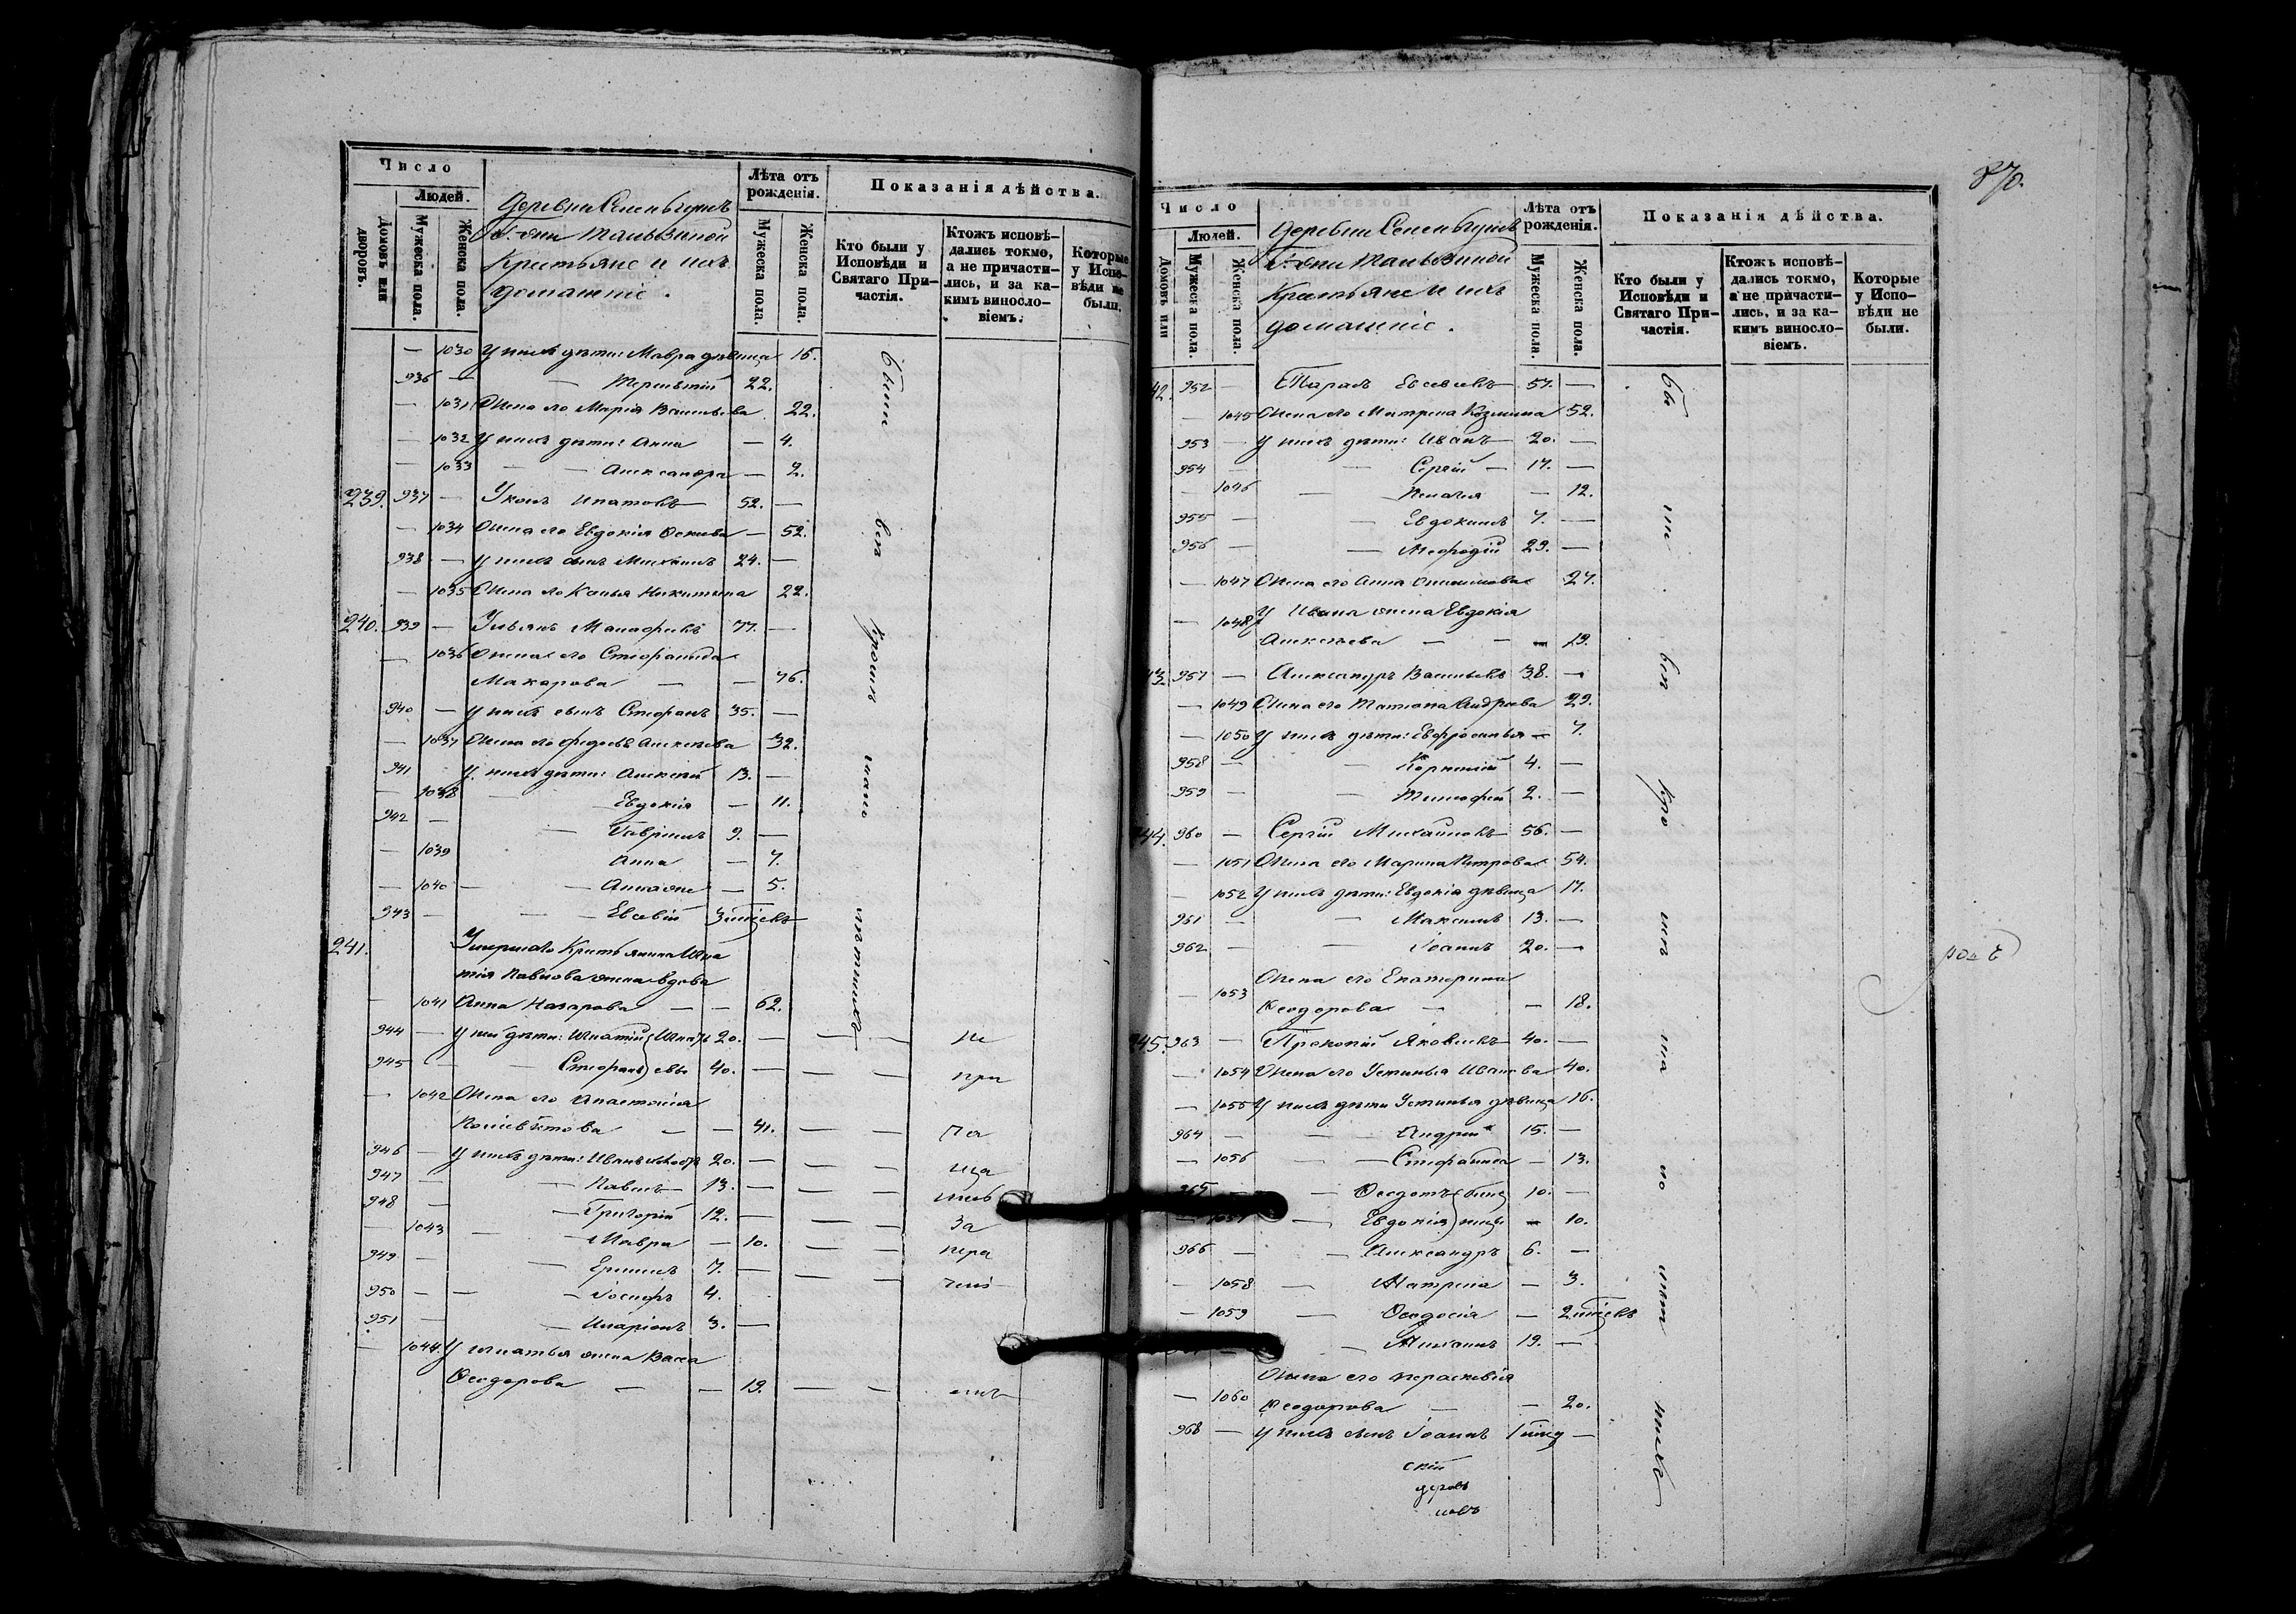 Число
Людей.
Домовъ или дворовъ.
Мужеска пола.
Женска пола.
Деревни
Крестьяне и ихъ
домашніе.
Лѣта отъ рожденія.
Мужеска пола.
Женска пола.
Показанія дѣйства.
Кто были у Исповѣди и Святаго При-частія.
Ктожъ исповѣ-дались токмо, а не причасти-лись, и за ка-кимъ винословіемъ.
Которые у Испо-вѣди не были.
— 1030 У нихъ дѣти: Мавра дѣвица 16.
936 — — Терентій 22.
— 1031 Жена его Марія Васильева 22.
— 1032 У нихъ дѣти: Анна — 4.
— 1033 — — Александра — 2.
239. 937 — Ипатовъ 52. —
— 1034 Жена его Евдокія Осипова — 52.
938 — У нихъ сынъ Михаилъ 24. —
— 1035 Жена его Никитина 22.
240. 939 — Ульянъ 77. —
— 1036 Жена его Стефанида
Макарова — — 76.
940 — У нихъ сынъ Стефанъ 35. —
— 1037 Жена его Алексѣева 32.
941 У нихъ дѣти: Алексѣй 13. —
— 1038 — Евдокія — 11.
942 — — Гавріилъ 9. —
— 1039 Анна — 7.
— 1040 — — — 5.
943 — — — Евсевій
241. Умершаго Крестьянина Игна
тія Павлова жена вдова
— 1041 Анна Назарова — — 62.
944 — У ней дѣти: Игнатій 20. — — —
945 — — Стефанъ 40. — — —
— 1042 Жена его Анастасія
— — 41. — —
946 — У нихъ дѣти: Иванъ 20. — — —
947 — — Павелъ 13. — — —
948 — — Григорій 12. — — —
— 1043 — — Мавра — 10. — —
949 — — 7. — — —
950 — — — Іосифъ 4.
951 — — Иларіонъ 3. —
— 1044. У Игнатья жена Васса
Ѳеодорова — — 19. — —
были
всѣ
кромѣ
мало
лѣтнихъ
не
при
ча
ща
лись
за
нера
870.
Число
Людей.
Домовъ или
Мужеска пола.
Женска пола.
Деревни
Крестьяне и ихъ
домашніе.
Лѣта отъ рожденія.
Мужеска пола.
Женска пола.
Показанія дѣйства.
Кто были у Исповѣди и Святаго При-частія.
Ктожъ исповѣ-дались токмо, а не причасти-лись, и за ка-кимъ винословіемъ.
Которые у Испо-вѣди не были.
42. 952 — Тарасъ Евсевьевъ 57. —
— 1045 Жена его Матрена Козмина 52.
953 — У нихъ дѣти: Иванъ 20. —
954 — — Сергій — 17. —
— 1046 — Пелагія — 12.
955 — — Евдокимъ 7. —
956 — — Меѳодій 29. —
— 1047 Жена его Анна 27.
— 1048 У Ивана жена Евдокія
Алексѣева — — — 19.
43. 957 — Александръ Васильевъ 38. —
— 1049 Жена его Татіана Андреева 29.
— 1050 У нихъ дѣти: Евфросинья — 7.
958 — — Корнилій 4. —
959 — — Тимофей 2. —
44. 960 — Сергій Михайловъ 56. —
— 1051 Жена его Марина Петрова 54.
— 1052 У нихъ дѣти: Евдокія дѣвица 17.
961 — — Максимъ 13. —
962 — — Іоаннъ 20. —
— 1053 Жена его Екатерина
Ѳеодорова — — 18.
45. 963 — Прокопій Яковлевъ 40. —
— 1054 Жена его Устинья Иванова 40.
— 1055 У нихъ дѣти Устинья дѣвица 16.
964 — — Андрей 15. —
— 1056 — — Стефанида — 13.
965 — — Ѳеодотъ близ 10. —
— 1057 — Евдокія нецы — 10.
966 — — Александръ 6. —
— 1058 — Матрена — 3.
— 1059 — Ѳеодосія —
— Михаилъ 19. —
— 1060 Жена его Параскевія
Ѳеодорова — — 20.
968 — У нихъ сынъ Іоаннъ —
бы
ли
всѣ
кро
мѣ
ма
ло
лѣт
нихъ